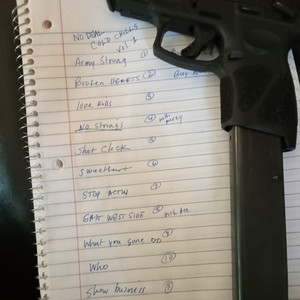 NO DEAL
COLD CRISIS
Vol 1
Army Strong ①
Broken HEARTS ②
Love Kills ③
No Strings ④ with
Shot Clock ⑤
Sweetheart ⑥
STOP ACTIN ⑦
EAST WEST SIDE ⑧ with
What you gone DO ⑨
Who ⑩
Show business